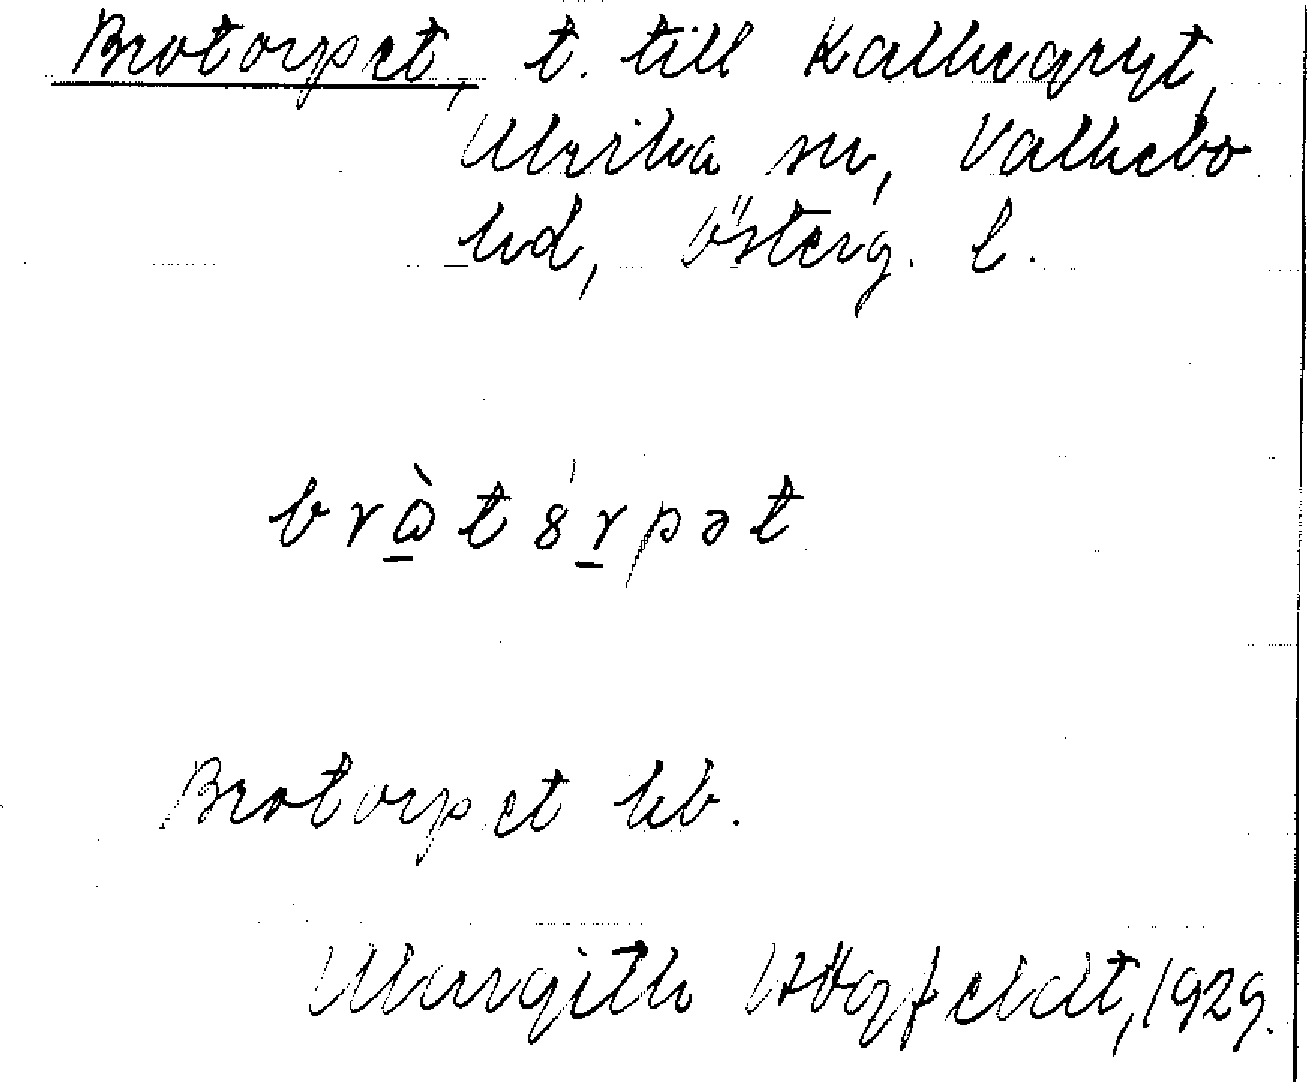 Brotorpet, t. till Kalhugryt,
Ulrika sn, Valkebo
hd, Österg. l.
Brotorpet kb.
Margith Högfeldt, 1929.